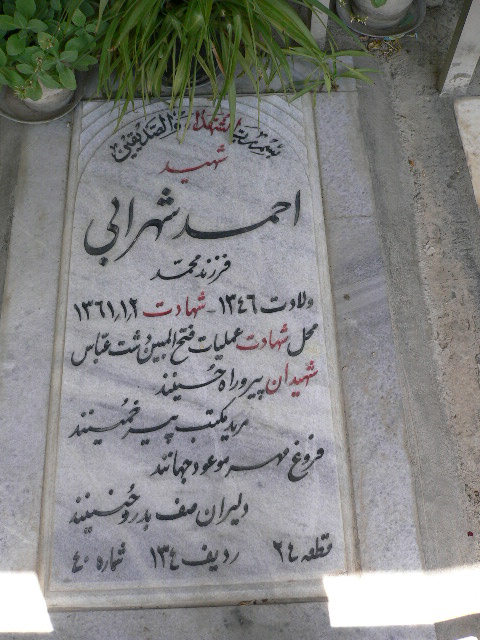 بسم رب الشهداء والصدیقین
شهید
احمد شهرابی
فرزند محمد
ولادت ۱۳۴۶ - شهادت ۱۳۶۱/۱/۲
محل شهادت عملیات فتح المبین دشت عباس
شهیدان پیرو راه حسینند
مرید مکتب پیر خمینند
فروغ مهر موعود جهانند
دلیران صف بدر و حنینند
قطعه ۲۴ ردیف ۱۳۴ شماره ۴۰